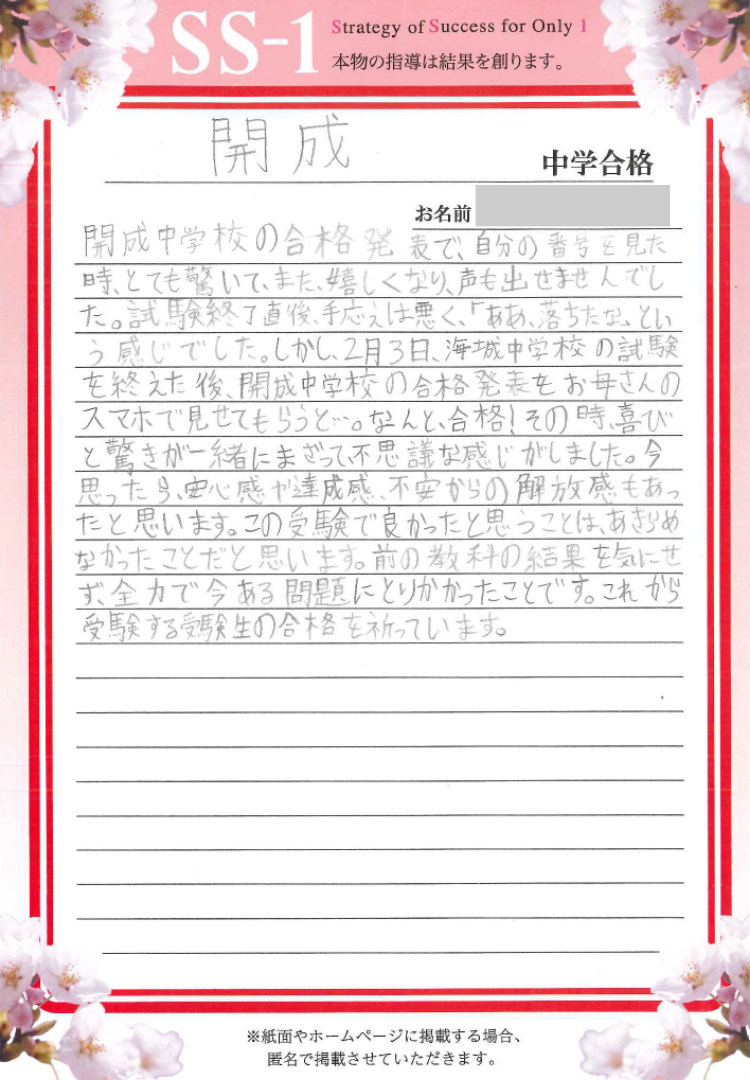 SS-1
Strategy of Success for Only 1
本物の指導は結果を創ります。
開成
中学合格
お名前
開成中学校の合格発表で、自分の番号を見た
時、とても驚いて、また、嬉しくなり、声も出せませんでし
た。試験終了直後、手応えは悪く、「ああ、落ちたな」とい
う感じでした。しかし、2月3日、海城中学校の試験
を終えた後、開成中学校の合格発表をお母さんの
スマホで見せてもらうと…。なんと、合格!その時、喜び
と驚きが一緒にまざって、不思議な感じがしました。今
思ったら、安心感や達成感、不安からの解放感もあっ
たと思います。この受験で良かったと思うことは、あきらめ
なかったことだと思います。前の教科の結果を気にせ
ず、全力で今ある問題にとりかかったことです。これから
受験する受験生の合格を祈っています。
※紙面やホームページに掲載する場合、
匿名で掲載させていただきます。